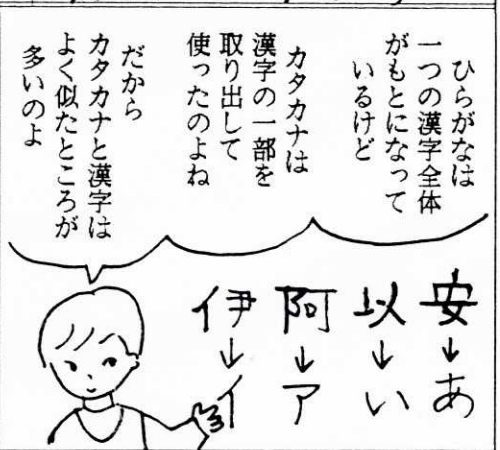 ひらがなは
一つの漢字全体
がもとになって
いるけど
カタカナは
漢字の一部を
取り出して
使ったのよね
だから
カタカナと漢字は
よく似たところが
多いのよ
安↓あ
以↓い
阿↓ア
伊↓イ